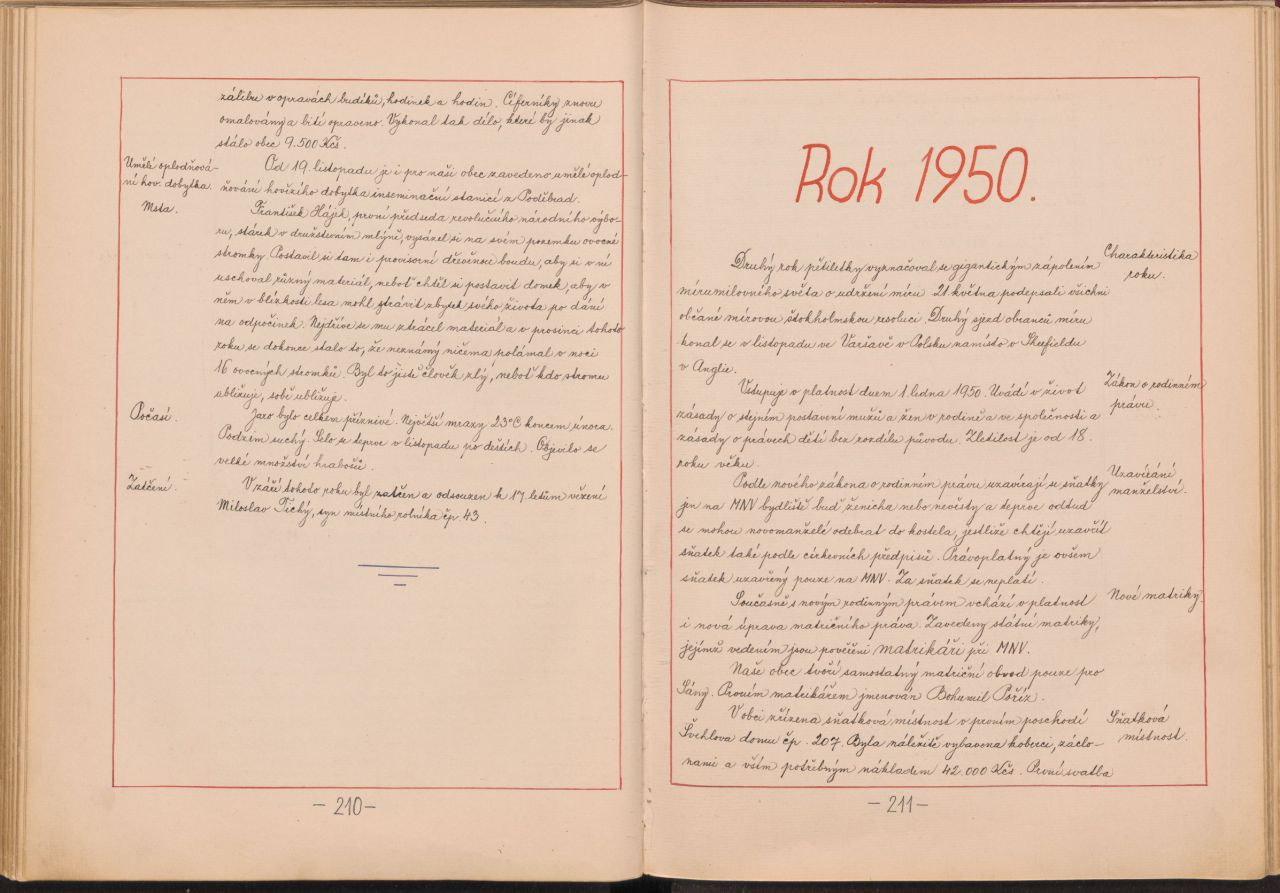 zálibu v opravách budíků, hodinek a hodin. Ciferníky znovu
omalovány a bití opraveno. Vykonal tak dílo, které by jinak
stálo obec 9.500 Kčs.
Umělé oplodňová-
ní hov. dobytka.
Od 19. listopadu je i pro naši obec zavedeno umělé oplod-
ňování hovězího dobytka inseminační stanicí z Poděbrad.
Msta.
František Hájek, první předseda revolučního národního výbo-
ru, stárek v družstevním mlýně, vysázel si na svém pozemku ovocné
stromky. Postavil si tam i provisorní dřevěnou boudu, aby si v ní
uschoval různý materiál, neboť chtěl si postavit domek, aby v
něm v blízkosti lesa mohl strávit zbytek svého života po dání
na odpočinek. Nejdříve se mu ztrácel materiál a v prosinci tohoto
roku se dokonce stalo to, že neznámý ničema polámal v noci
16 ovocných stromků. Byl to jistě člověk zlý, neboť kdo stromu
ubližuje, sobě ubližuje.
Počasí.
Jaro bylo celkem příznivé. Největší mrazy 23°C koncem února.
Podzim suchý. Selo se teprve v listopadu po deštích. Objevilo se
velké množství hrabošů.
Zatčení.
V září tohoto roku byl zatčen a odsouzen k 17 letům vězení
Miloslav Tichý, syn místního rolníka čp. 43.
-210-
Rok 1950.
Charakteristika
roku.
Druhý rok pětiletky vyznačoval se gigantickým zápolením
mírumilovného světa o udržení míru. 21. května podepsali všichni
občané mírovou štokholmskou resoluci. Druhý sjezd obranců míru
konal se v listopadu ve Varšavě v Polsku namísto v Sheffieldu
v Anglii.
Zákon o rodinném
právu.
Vstupuje v platnost dnem 1. ledna 1950. Uvádí v život
zásady o stejném postavení mužů a žen v rodině a ve společnosti a
zásady o právech dětí bez rozdílu původu. Zletilost je od 18.
roku věku.
Uzavírání
manželství.
Podle nového zákona o rodinném právu uzavírají se sňatky
jen na MNV bydliště buď ženicha nebo nevěsty a teprve odtud
se mohou novomanželé odebrat do kostela, jestliže chtějí uzavřít
sňatek také podle církevních předpisů. Právoplatný je ovšem
sňatek uzavřený pouze na MNV. Za sňatek se neplatí.
Nové matriky.
Současně s novým rodinným právem vchází v platnost
i nová úprava matričního práva. Zavedeny státní matriky,
jejímž vedením jsou pověřeni matrikáři při MNV.
Naše obec tvoří samostatný matriční obvod pouze pro
Sány. Prvním matrikářem jmenován Bohumil Poříz.
Sňatková
místnost.
V obci zřízena sňatková místnost v prvním poschodí
Švehlova domu čp. 207. Byla náležitě vybavena koberci, záclo-
nami a vším potřebným nákladem 42.000 Kčs. První svatba
-211-